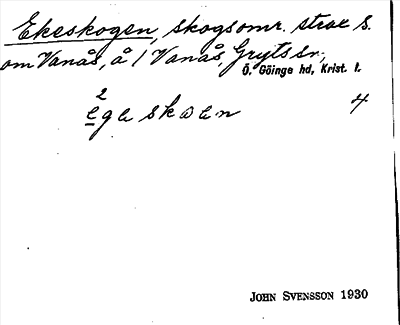 Ekeskogen, skogsomr. strax s.
om Vanås, å 1 Vanås, Gryts sn.,
Ö. Göinge hd, Krist. l.
2
egaskawan 4
JOHN SVENSSON 1930